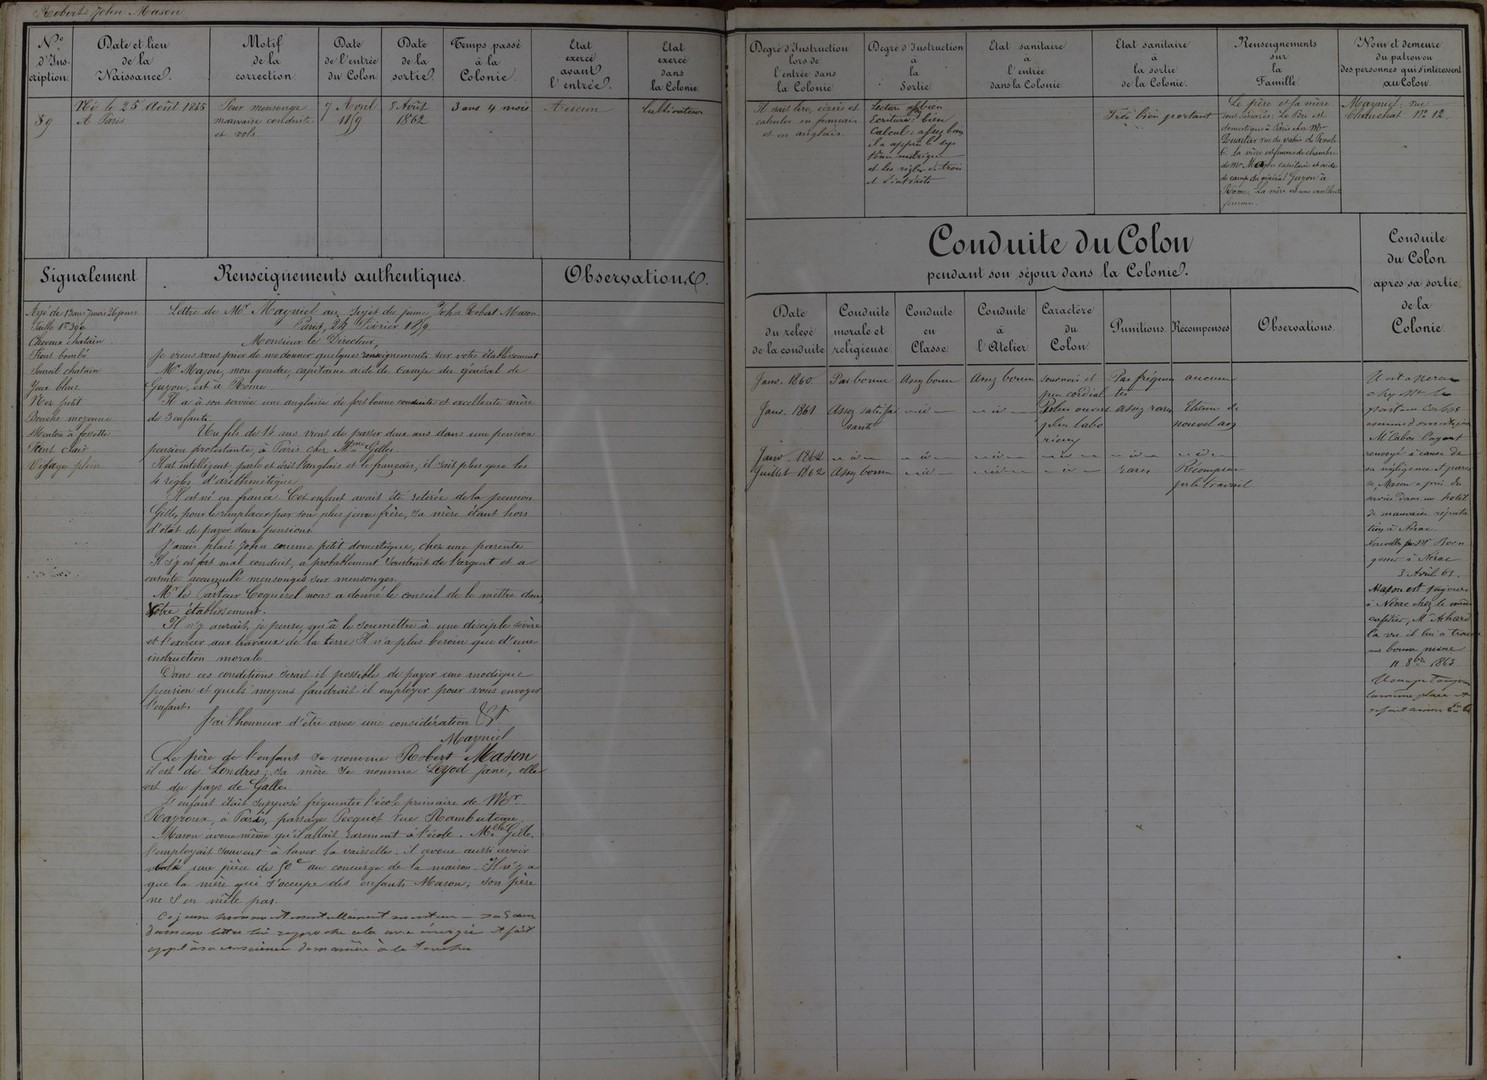 Robert John Mason
Nº d'Inscription.
Date et lieu de la Naissance.
Motif de la correction.
Date de l'entrée du Colon.
Date de la sortie.
Temps passé à la Colonie.
Etat exercé avant l'entrée.
Etat exercé dans la Colonie.
89
Né le 25 Août 1845
A Paris
Pour mensonge
mauvaise conduite
et vols
7 Avril
1859
8 Août
1862
3 ans 4 mois
Aucun
Cultivateur
Signalement
Agé de 13 ans 7 mois 26 jours
Taille 1m 390
Cheveux chatain
Front bombé
Sourcil chatain
Yeux bleus
Nez petit
Bouche moyenne
Menton à fossette
Teint clair
Visage plein
Renseignements authentiques.
Lettre de Mr Mayniel au sujet du jeune John Robert Mason
Paris, 24 Février 1859
Monsieur le Directeur,
Je viens vous prier de me donner quelques renseignements sur votre établissement
Mr Majou, mon gendre, capitaine aide de camp du général de
Guyon, est à Rome
Il a à son service une anglaise de fort bonne conduite et excellente mère
de 3 enfants.
Un fils de 14 ans vient de passer deux ans dans une pension
pension protestante, à Paris chez Mme Gilles
Il est intelligent, parle et écrit l'anglais et le français, il sait plus que les
4 règles d'arithmétique
Il est né en france. Cet enfant avait été retiré de la pension
Gilles, pour le remplacer par son plus jeune frère, sa mère étant hors
d'état de payer deux pensions
J'avais placé John comme petit domestique, chez une parente
Il s'y est fort mal conduit, a probablement soustrait de l'argent et a
ensuite accumulé mensonges sur mensonges.
Mr le Pasteur Coquerel nous a donné le conseil de le mettre dans
Votre établissement.
Il n'y aurait, je pense, qu'à le soumettre à une disciple sévère
et l'exercer aux travaux de la terre Il n'a plus besoin que d'une
instruction morale
Dans ces conditions serait il possible de payer une modique
pension et quels moyens faudrait il employer pour vous envoyer
l'enfant.
J'ai l'honneur d'être avec une considération &t
Mayniel
Le père de l'enfant se nomme Robert Mason
il est de Londres; sa mère se nomme Leyod Jane, elle
est du pays de Galles
L'enfant était supposé fréquenter l'école primaire de Mr
Rayroux, à Paris, passage Pecquet rue Rambuteau.
Mason avoue même qu'il allait rarement à l'école. Mlle Gille
l'employait souvent à laver la vaisselle. il avoue aussi avoir
volé une pièce de 50c au concierge de la maison. Il n'y a
que la mère qui s'occupe des enfants Mason, son père
ne s'en mêle pas.
Ce jeune
lettre lui reproche cela avec énergie et fait
appel à sa conscience de manière à le toucher
Observations.
Degré d'Instruction lors de l'entrée dans la Colonie
Degré d'Instruction à la Sortie
Etat sanitaire à l'entrée dans la Colonie
Etat sanitaire à la sortie de la Colonie.
Renseignements sur la Famille.
Nom et demeure du patron ou des personnes qui s'intéressent au Colon.
Il sait lire, écrire et
calculer en français
et en anglais.
Lecture bien
Ecriture bien
Calcul assez bon
il a appris le sys
tème métrique
et les règles de trois
et d'intérêts
Très bien portant
Le père et la mère
sont séparés. Le Père est
domestique à Paris chez Mr
6. La mère est femme de chambre
de Mme Majou capitaine et aide
de camp du général Guyon à
Rome. La mère est une excellente
femme.
Mayniel, rue
Chauchat Nº 12.
Conduite du Colon
pendant son séjour dans la Colonie.
Date du relevé de la conduite
Conduite morale et religieuse
Conduite en Classe
Conduite à l'Atelier
Caractère du Colon
Punitions
Récompenses
Observations
Janv. 1860. Pas bonne Assez bonne Assez bonne sournois et peu cordial Pas fréquentes aucune
Janv. 1861 Assez satisfaisante – id – – id – Plus ouvert plus laborieux assez rares Etrenne de nouvel an
Janv. 1862 – id – – id – – id – – id – – id – – id –
Juillet 1862 Assez bonne – id – – id – – id – rares Récompense pr le travail
Conduite du Colon après sa sortie de la Colonie.
Il est à Nerac
chez Mr le
pasteur
renvoyé à cause de
sa négligence et pares
se, Mason a pris du
service dans un hotel
de mauvaise réputa
tion à Nérac
3 Avril 63.
Mason est toujours
à Nérac chez le même
cafetier, Mr Achard
l'a vu il lui a trouvé
une bonne mine
11 8bre 1863
la même place et